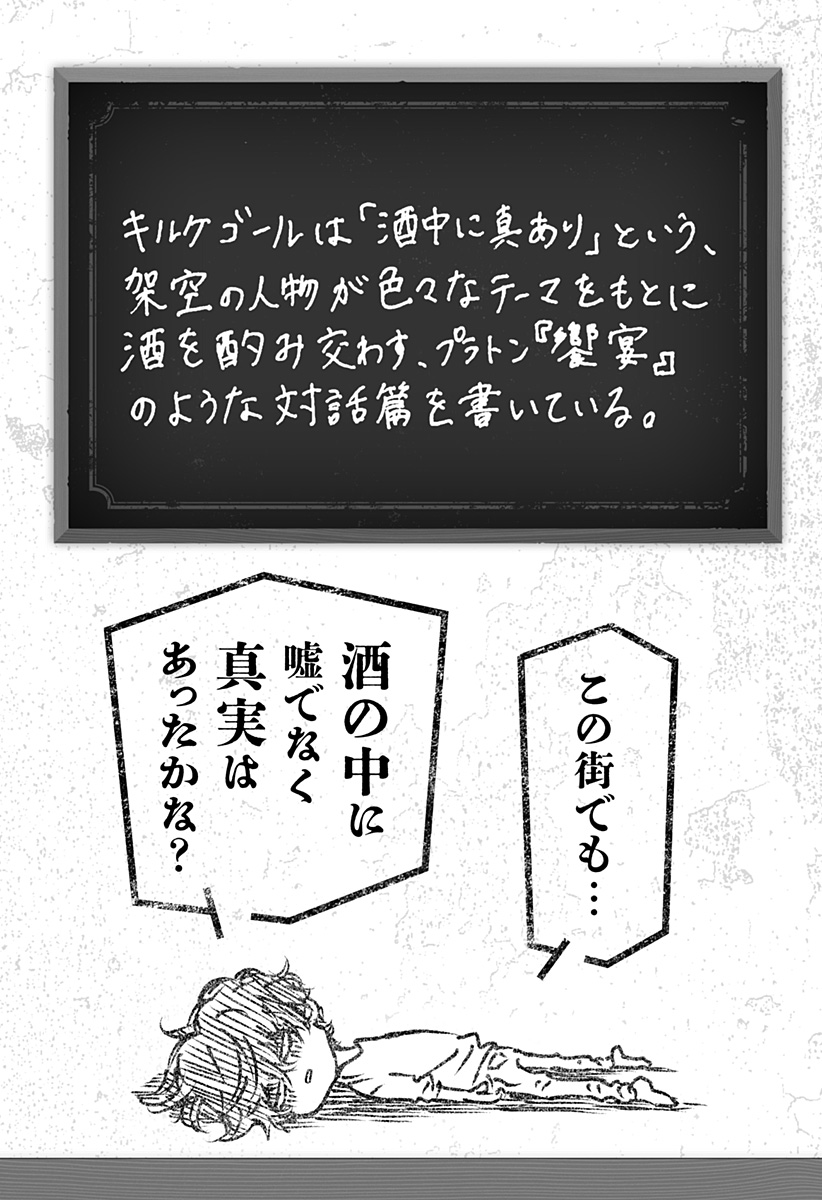 キルケゴールは「酒中に真あり」という、
架空の人物が色々なテーマをもとに
酒を酌み交わす、プラトン『饗宴』
のような対話篇を書いている。
この街でも…
酒の中に
嘘でなく
真実は
あったかな?